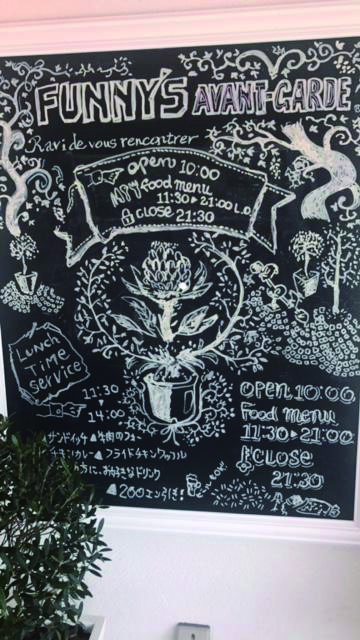 FUNNY'S AVANT-GARDE
Ravi de vous rencontrer
open 10:00
food menu
11:30▸21:00 L.O
CLOSE 21:30
Lunch
Time
Service
11:30
14:00
サンドイッチ▲牛肉のフォー
チキンカレー▲フライドチキンワッフル
うちに、お好きなドリンク
▲200エン引き!
open 10:00
Food menu
11:30▸21:00
CLOSE
21:30